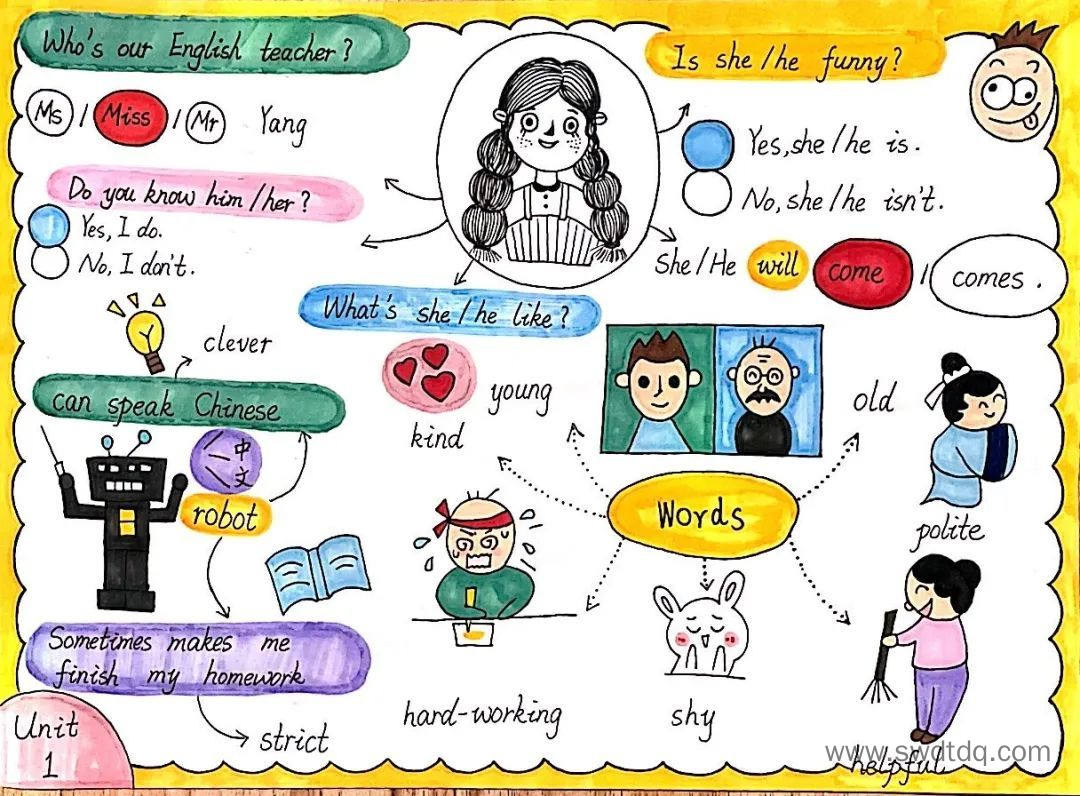 Who's our English teacher?
Ms / Miss / Mr Yang
Do you know him/her?
Yes, I do.
No, I don't.
Is she/he funny?
Yes, she/he is.
No, she/he isn't.
She/He will come / comes.
What's she/he like?
clever
can speak Chinese
中
文
robot
Sometimes makes me
finish my homework
strict
Unit
1
young
kind
old
polite
Words
hard-working
shy
helpful
www.swdtdq.com